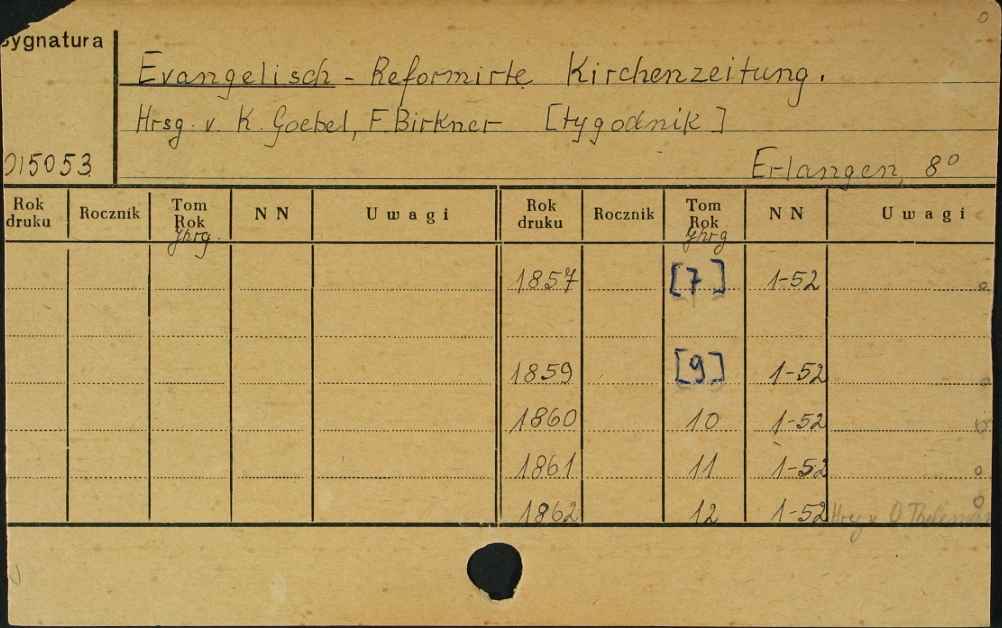 Sygnatura
Evangelisch - Reformirte Kirchenzeitung.
Hrsg. v. K. Goebel, F. Birkner [tygodnik]
015053
Erlangen, 8°
Rok druku Rocznik Tom Rok Jhrg. NN Uwagi Rok druku Rocznik Tom Rok Jhrg NN Uwagi
1857 [7] 1-52
1859 [9] 1-52
1860 10 1-52
1861 11 1-52
1862 12 1-52 Hrsg v. O.